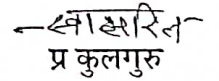 —स्वाक्षरित—
प्र कुलगुरु